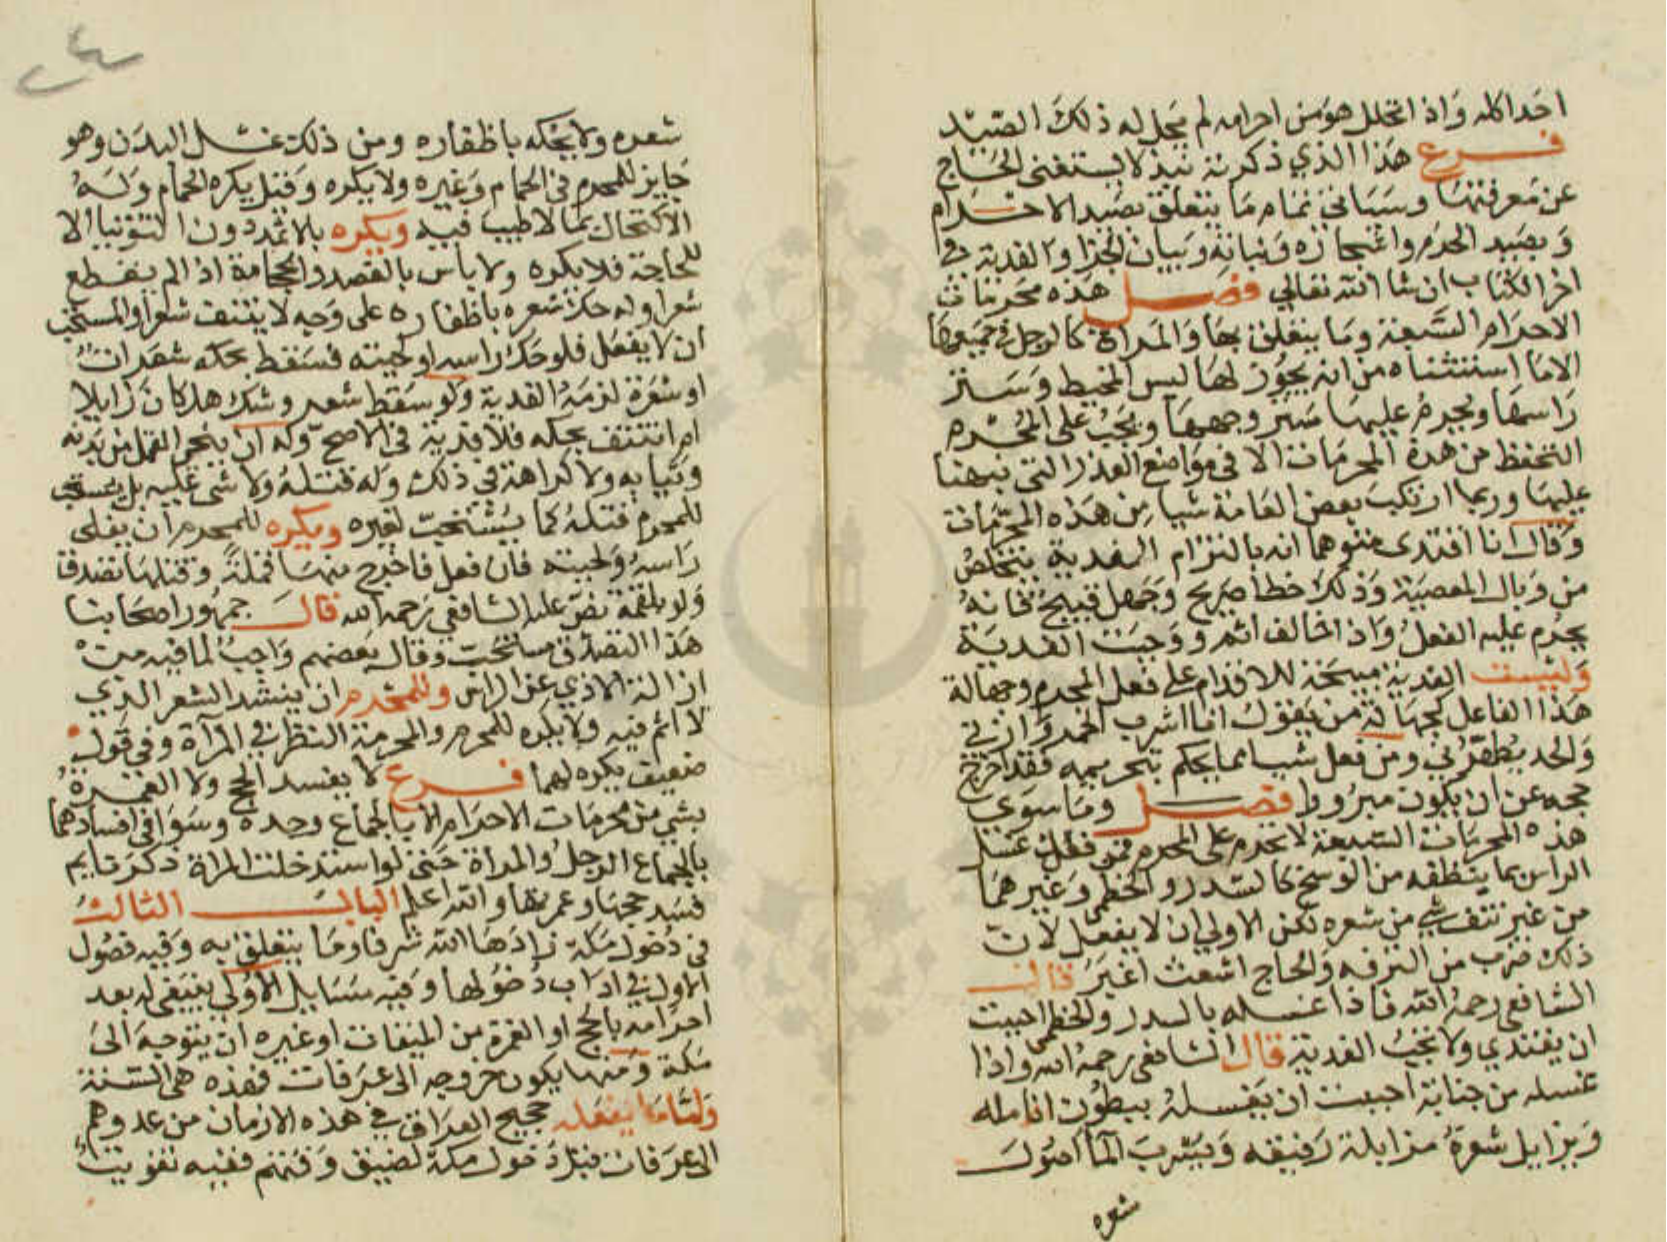 احدا كله واذا تحلل هو من احرامه لم يحل له ذلك الصيد
فرع هذا الذي ذكرته نبذ لا يستغنى الحاج
عن معرفتها وسياتي تمام ما يتعلق بصيد الاحرام
وبصيد الحرم واشجاره ونباته وبيان الجزا والفدية في
اخر الكتاب ان شا الله تعالي فصل هذه محرمات
الاحرام السبعة وما يتعلق بها والمراة كالرجل في جميعها
الا ما استثنناه من انه يجوز لها لبس المخيط وستر
راسها ويحرم عليها ستر وجهها ويجب على المحرم
التحفظ من هذه المحرمات الا في مواضع العذر التي نبهنا
عليها وربما ارتكب بعض العامة شيا من هذه المحرمات
وقال انا افتدى متوهما انه بالتزام الفدية يتخلص
من وبال المعصية وذلك خطأ صريح وجهل قبيح فانه
يحرم عليه الفعل واذا خالف اثم ووجبت الفدية
وليست الفدية مبيحة للاقدام على فعل المحرم وجهالة
هذا الفاعل كجهالة من يقول انا اشرب الخمر وازني
والحد يطهرني ومن فعل شيا مما يحكم بتحريمه فقد اخرج
حجه عن ان يكون مبرورا فصل وما سوى
هذه المحرمات السبعة لا تحرم على المحرم فمن ذلك غسل
الراس بما ينظفه من الوسخ كالسدر والخطمي وغيرهما
من غير نتف شي من شعره لكن الاولي ان لا يفعل لان
ذلك ضرب من الترفه والحاج اشعث اغبر قال
الشافعي رحمه الله فاذا غسله بالسدر والخطمي احببت
ان يفتدي ولا تجب الفدية قال الشافعي رحمه الله واذا
غسله من جنابة احببت ان يغسله ببطون انامله
ويزايل شعره مزايلة رفيقه ويشرب الما اصول
شعره
شعره ولا يحكه باظفاره ومن ذلك غسل البدن وهو
جايز للمحرم في الحمام وغيره ولا يكره وقيل يكره الحمام وله
الاكتحال بما لا طيب فيه ويكره بلاثمد دون التوتيا الا
للحاجة فلا يكره ولا باس بالفصد والحجامة اذا لم يقطع
شعرا وله حك شعره باظفاره على وجه لا ينتف شعرا والمستحب
ان لا يفعل فلو حك راسه او لحيته فسقط بحكه شعرات
او شعرة لزمه الفدية ولو سقط شعر وشك هل كان زايلا
ام انتتف بحكه فلا فدية في الاصح وله ان ينحي القمل من بدنه
وثيابه ولا كراهة في ذلك وله قتله ولا شى عليه بل يستحب
للمحرم قتله كما يستحب لغيره ويكره للمحرم ان يفلى
راسه ولحيته فان فعل فاخرج منها قملة وقتلها تصدق
ولو بلقمة نص عليه الشافعي رحمه الله قال جمهور اصحابنا
هذا التصدق مستحب وقال بعضهم واجب لما فيه من
ازالة الاذي عن الراس وللمحرم ان ينشد الشعر الذي
لا اثم فيه ولا يكره للمحرم والمحرمة النظر في المرآة وفي قول
ضعيف يكره لهما فرع لا يفسد الحج ولا العمرة
بشي من محرمات الاحرام الا بالجماع وحده وسوا في افسادهما
بالجماع الرجل والمراة حتى لو استدخلت المراة ذكر نايم
فسد حجها وعمرتها والله اعلم الباب الثالث
في دخول مكة زادها الله شرفا وما يتعلق به وفيه فصول
الاول في اداب دخولها وفيه مسايل الاولي ينبغي له بعد
احرامه بالحج او العمرة من الميقات او غيره ان يتوجه الى
مكة ومنها يكون خروجه الى عرفات فهذه هي السنة
واما ما يفعله حجيج العراق في هذه الازمان من عدولهم
الى عرفات قبل دخول مكة لضيق وقتهم ففيه تفويت